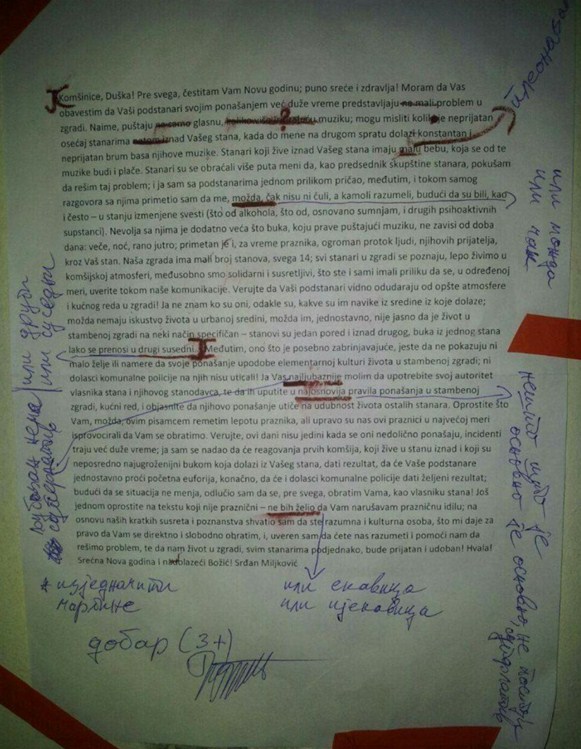 Komšinice, Duška! Pre svega, čestitam Vam Novu godinu; puno sreće i zdravlja! Moram da Vas
obavestim da Vaši podstanari svojim ponašanjem već duže vreme predstavljaju ne mali problem u
zgradi. Naime, puštaju glasnu, muziku; mogu misliti koliko je neprijatan
osećaj stanarima iznad Vašeg stana, kada do mene na drugom spratu dolazi konstantan i
neprijatan brum basa njihove muzike. Stanari koji žive iznad Vašeg stana imaju malu bebu, koja se od te
muzike budi i plače. Stanari su se obraćali više puta meni da, kao predsednik skupštine stanara, pokušam
da rešim taj problem; i ja sam sa podstanarima jednom prilikom pričao, međutim, i tokom samog
razgovora sa njima primetio sam da me, možda, čak nisu ni čuli, a kamoli razumeli, budući da su bili, kao
i često – u stanju izmenjene svesti (što od alkohola, što od, osnovano sumnjam, i drugih psihoaktivnih
supstanci). Nevolja sa njima je dodatno veća što buka, koju prave puštajući muziku, ne zavisi od doba
dana: veče, noć, rano jutro; primetan je i, za vreme praznika, ogroman protok ljudi, njihovih prijatelja,
kroz Vaš stan. Naša zgrada ima mali broj stanova, svega 14; svi stanari u zgradi se poznaju, lepo živimo u
komšijskoj atmosferi, međusobno smo solidarni i susretljivi, što ste i sami imali priliku da se, u određenoj
meri, uverite tokom naše komunikacije. Verujte da Vaši podstanari vidno odudaraju od opšte atmosfere
i kućnog reda u zgradi! Ja ne znam ko su oni, odakle su, kakve su im navike iz sredine iz koje dolaze;
možda nemaju iskustvo života u urbanoj sredini, možda im, jednostavno, nije jasno da je život u
stambenoj zgradi na neki način specifičan – stanovi su jedan pored i iznad drugog, buka iz jednog stana
lako se prenosi u drugi susedni. Međutim, ono što je posebno zabrinjavajuće, jeste da ne pokazuju ni
malo želje ili namere da svoje ponašanje upodobe elementarnoj kulturi života u stambenoj zgradi; ni
dolasci komunalne policije na njih nisu uticali! Ja Vas najljubaznije molim da upotrebite svoj autoritet
vlasnika stana i njihovog stanodavca, te da ih uputite u najosnovnija pravila ponašanja u stambenoj
zgradi, kućni red, i objasnite da njihovo ponašanje utiče na udobnost života ostalih stanara. Oprostite što
Vam, možda, ovim pisamcem remetim lepotu praznika, ali upravo su nas ovi praznici u najvećoj meri
isprovocirali da Vam se obratimo. Verujte, ovi dani nisu jedini kada se oni nedolično ponašaju, incidenti
traju već duže vreme; ja sam se nadao da će reagovanja prvih komšija, koji žive u stanu iznad i koji su
neposredno najugroženiji bukom koja dolazi iz Vašeg stana, dati rezultat, da će Vaše podstanare
jednostavno proći početna euforija, konačno, da će i dolasci komunalne policije dati željeni rezultat;
budući da se situacija ne menja, odlučio sam da se, pre svega, obratim Vama, kao vlasniku stana! Još
jednom oprostite na tekstu koji nije praznični – ne bih želio da Vam narušavam prazničnu idilu; na
osnovu naših kratkih susreta i poznanstva shvatio sam da ste razumna i kulturna osoba, što mi daje za
pravo da Vam se direktno i slobodno obratim, i, uveren sam da ćete nas razumeti i pomoći nam da
rešimo problem, te da nam život u zgradi, svim stanarima podjednako, bude prijatan i udoban! Hvala!
Srećna Nova godina i nadolazeći Božić! Srđan Miljković
плеоназам
или можда
или чак
или други
или суседни
нешто што је
основно је основно, не постоји
суперлатив
* изједначити
маргине
или екавица
или ијекавица
добар (3+)